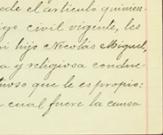 ede el artículo quinien
igo civil vigente, les
n hijo Nicolás Miguel,
a y religiosa conduc
uoso que le es propio:
cual fuere la causa